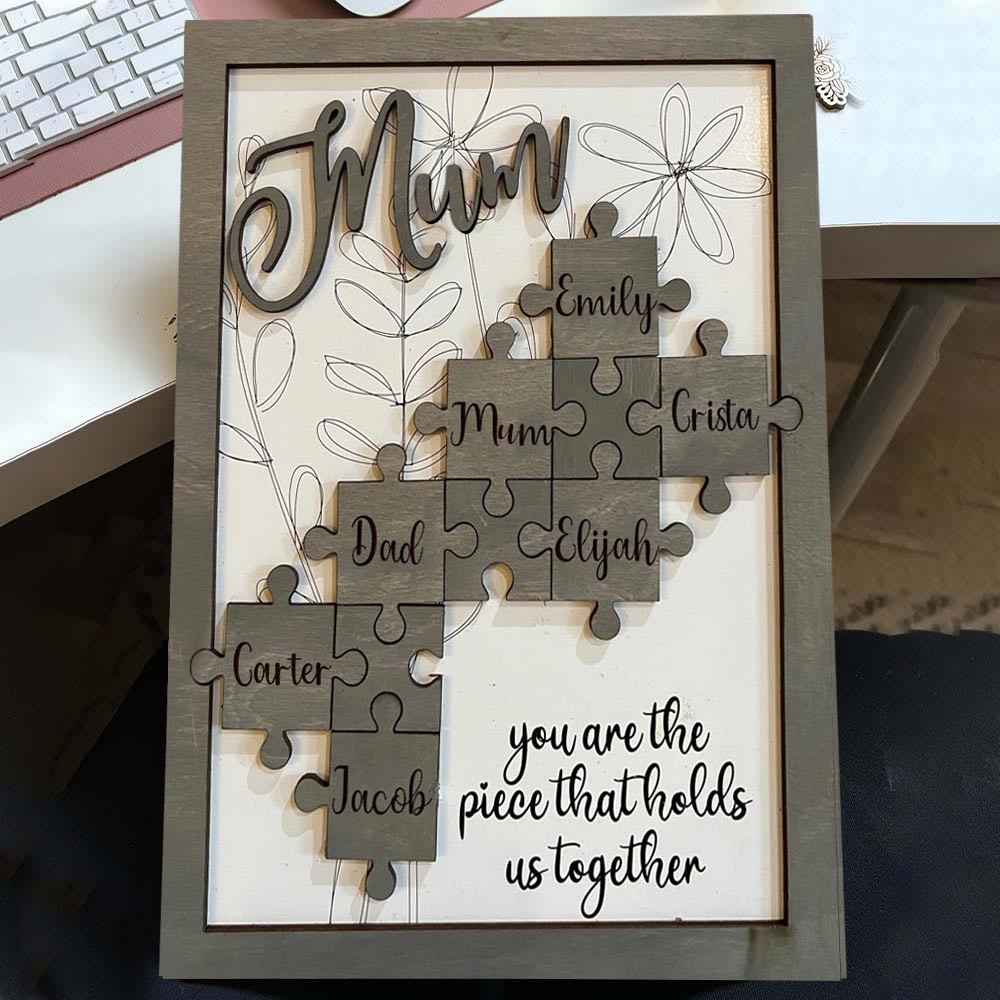 Mum
Emily
Mum
Crista
Dad
Elijah
Carter
Jacob
you are the
piece that holds
us together